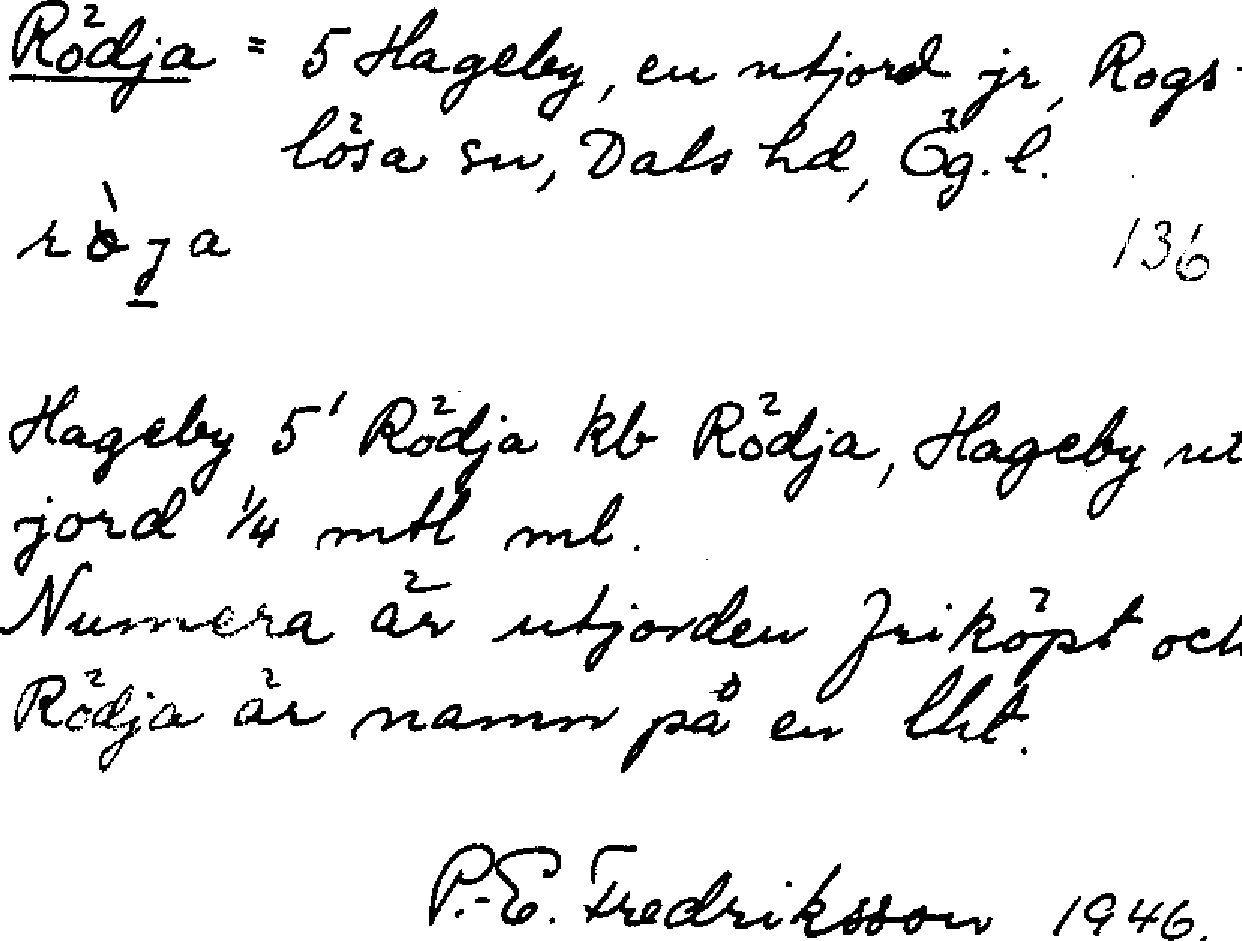 Rödja = 5 Hageby, en utjord jr, Rogs-
lösa sn, Dals hd, Ög. l.
136
Hageby 5¹ Rödja kb Rödja, Hageby ut
jord ¼ mtl ml.
Numera är utjorden friköpt och
Rödja är namn på en lht.
P.-E. Fredriksson 1946.